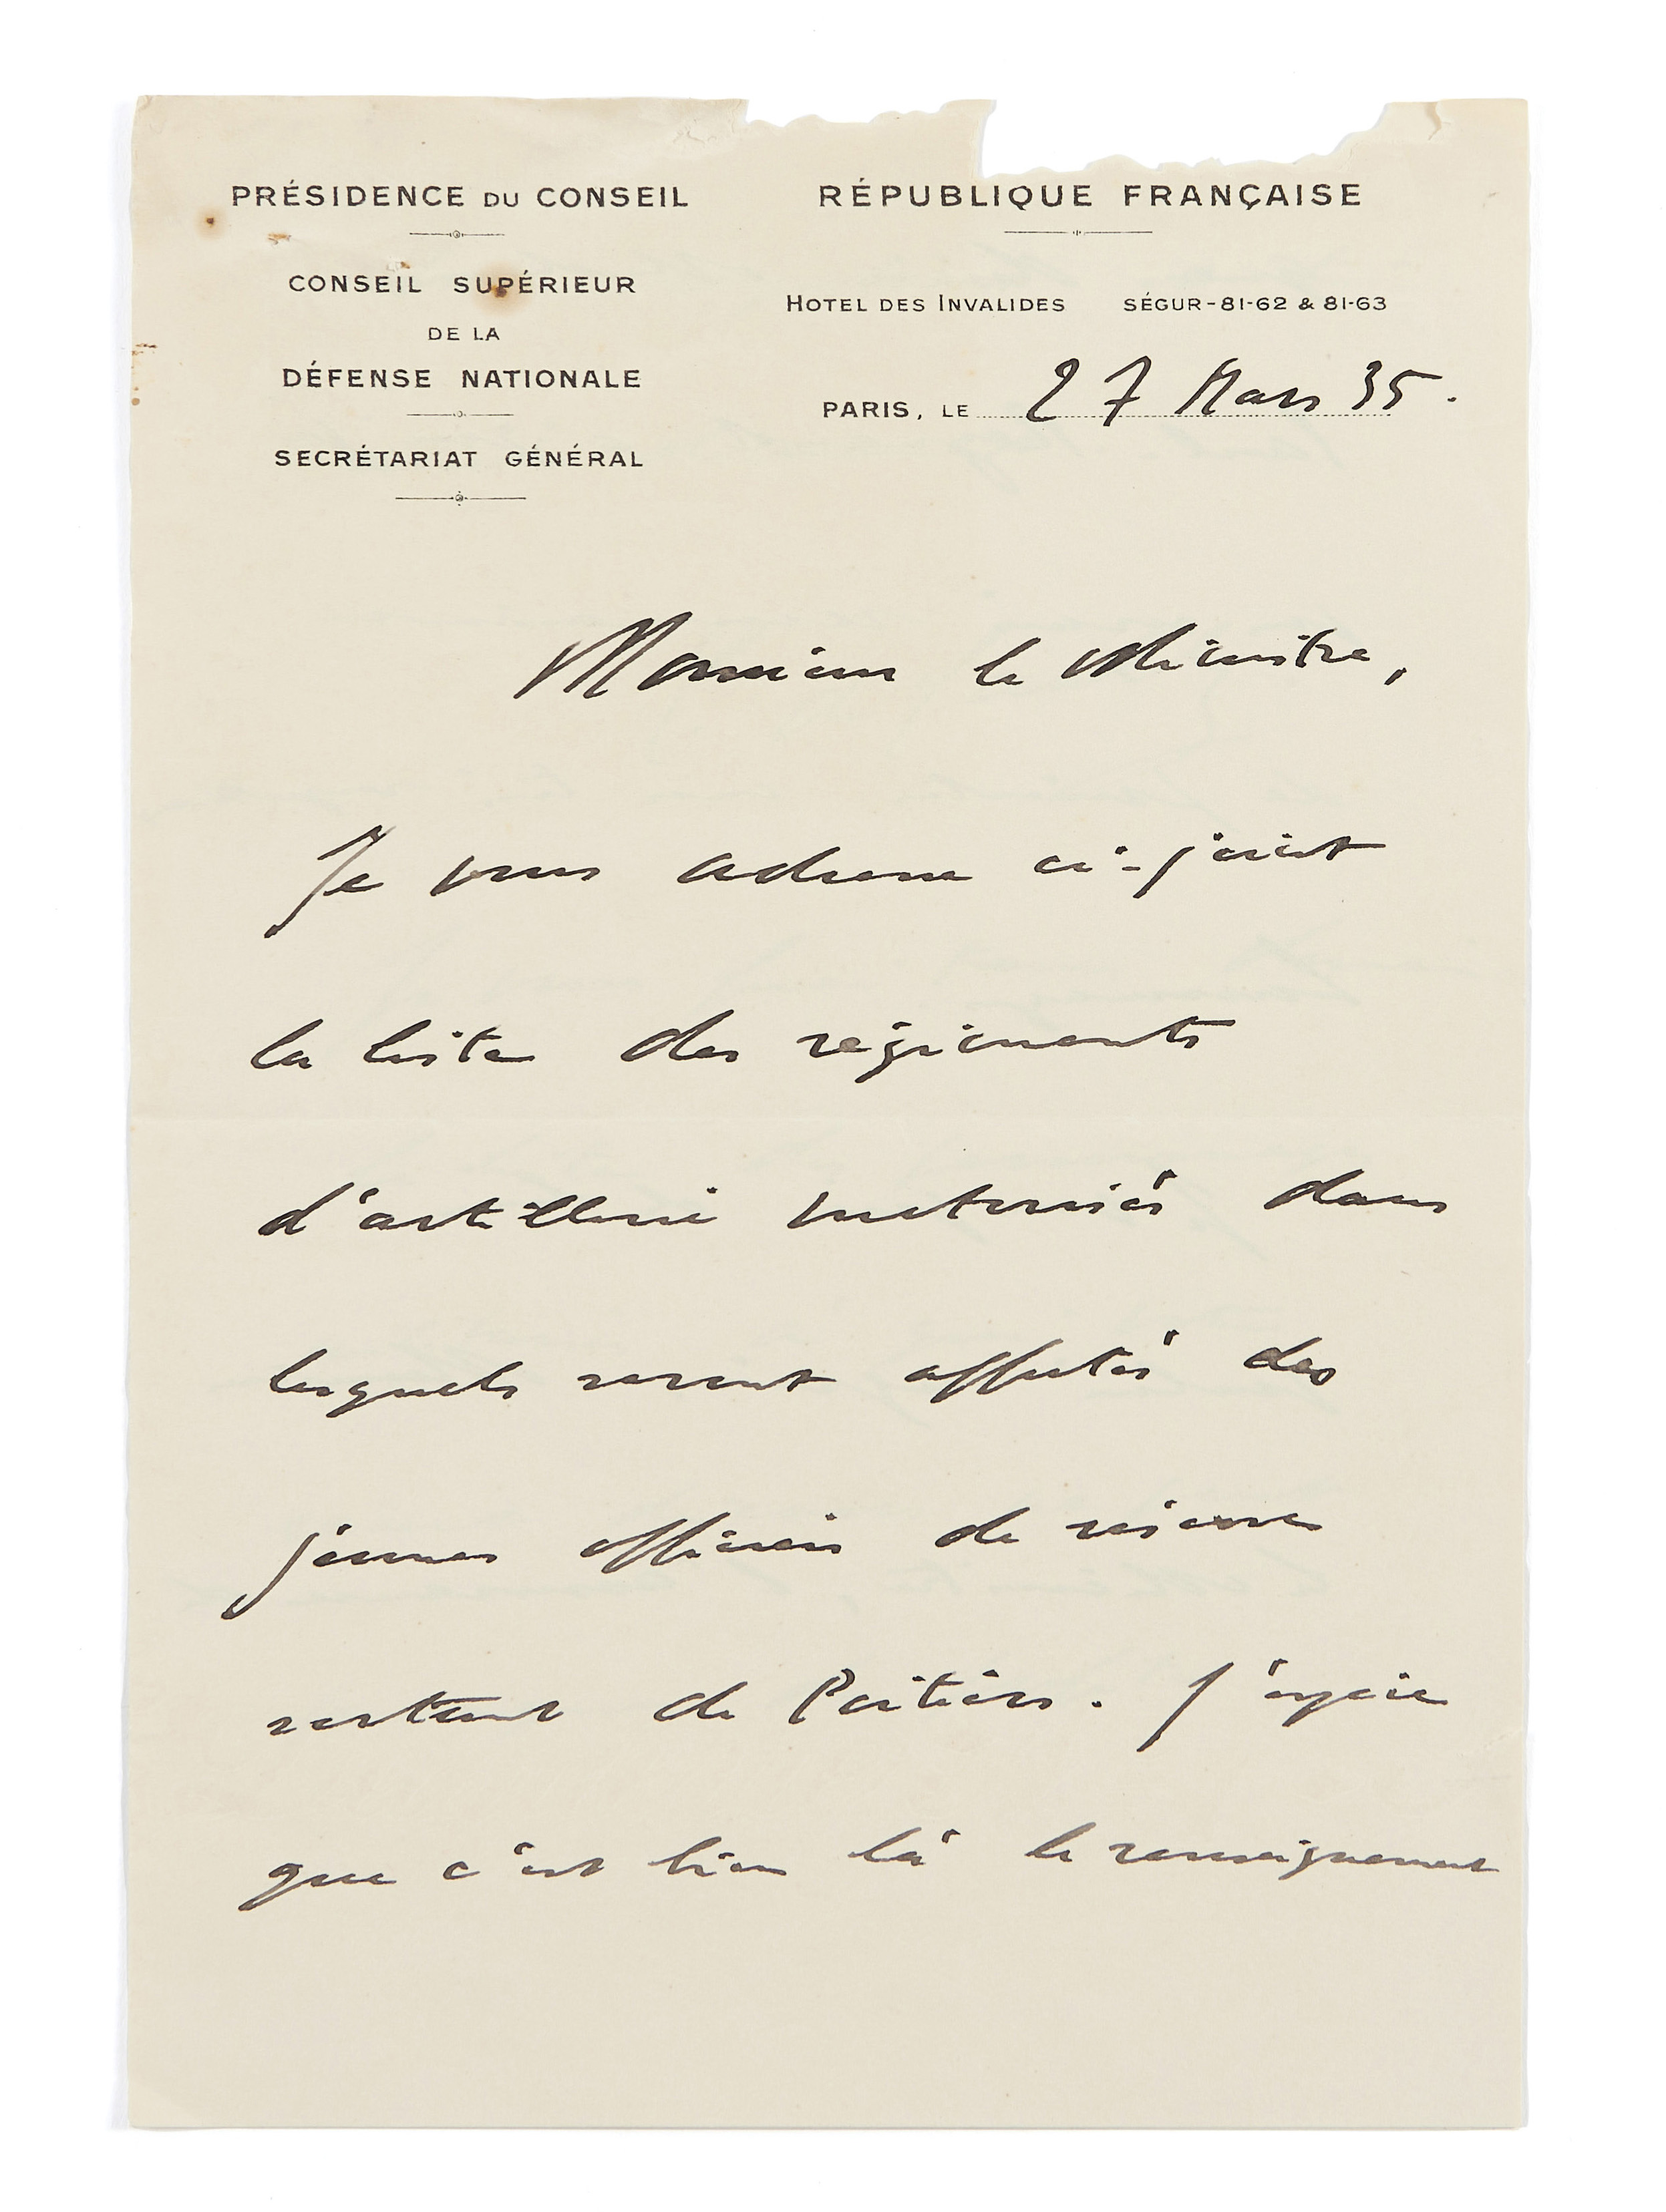 PRÉSIDENCE DU CONSEIL
CONSEIL SUPÉRIEUR
DE LA
DÉFENSE NATIONALE
SECRÉTARIAT GÉNÉRAL
RÉPUBLIQUE FRANÇAISE
HOTEL DES INVALIDES SÉGUR-81-62 & 81-63
PARIS, LE 27 Mars 35.
Monsieur le Ministre,
Je vous adresse ci-joint
la liste des régiments
d'artillerie motorisés dans
lesquels seront affectés des
jeunes officiers de réserve
sortant de Poitiers. J'espère
que c'est bien là le renseignement